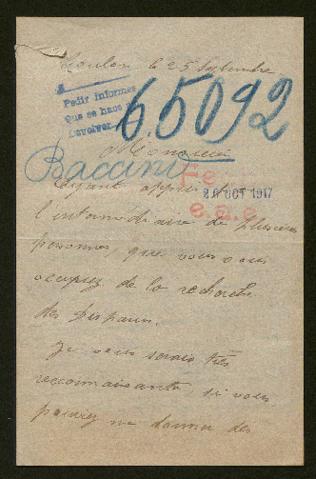 Toulon le 25 Septembre
Pedir Informes
que se hace
Devolver
65092
Monsieur
Baccini
26 OCT 1917
Ayant appris
l'intermédiaire de plusieurs
personnes, que vous vous
ocupiez de la recherche
des disparus.
Je vous serais très
reconnaissante, si vous
pouviez me donner des